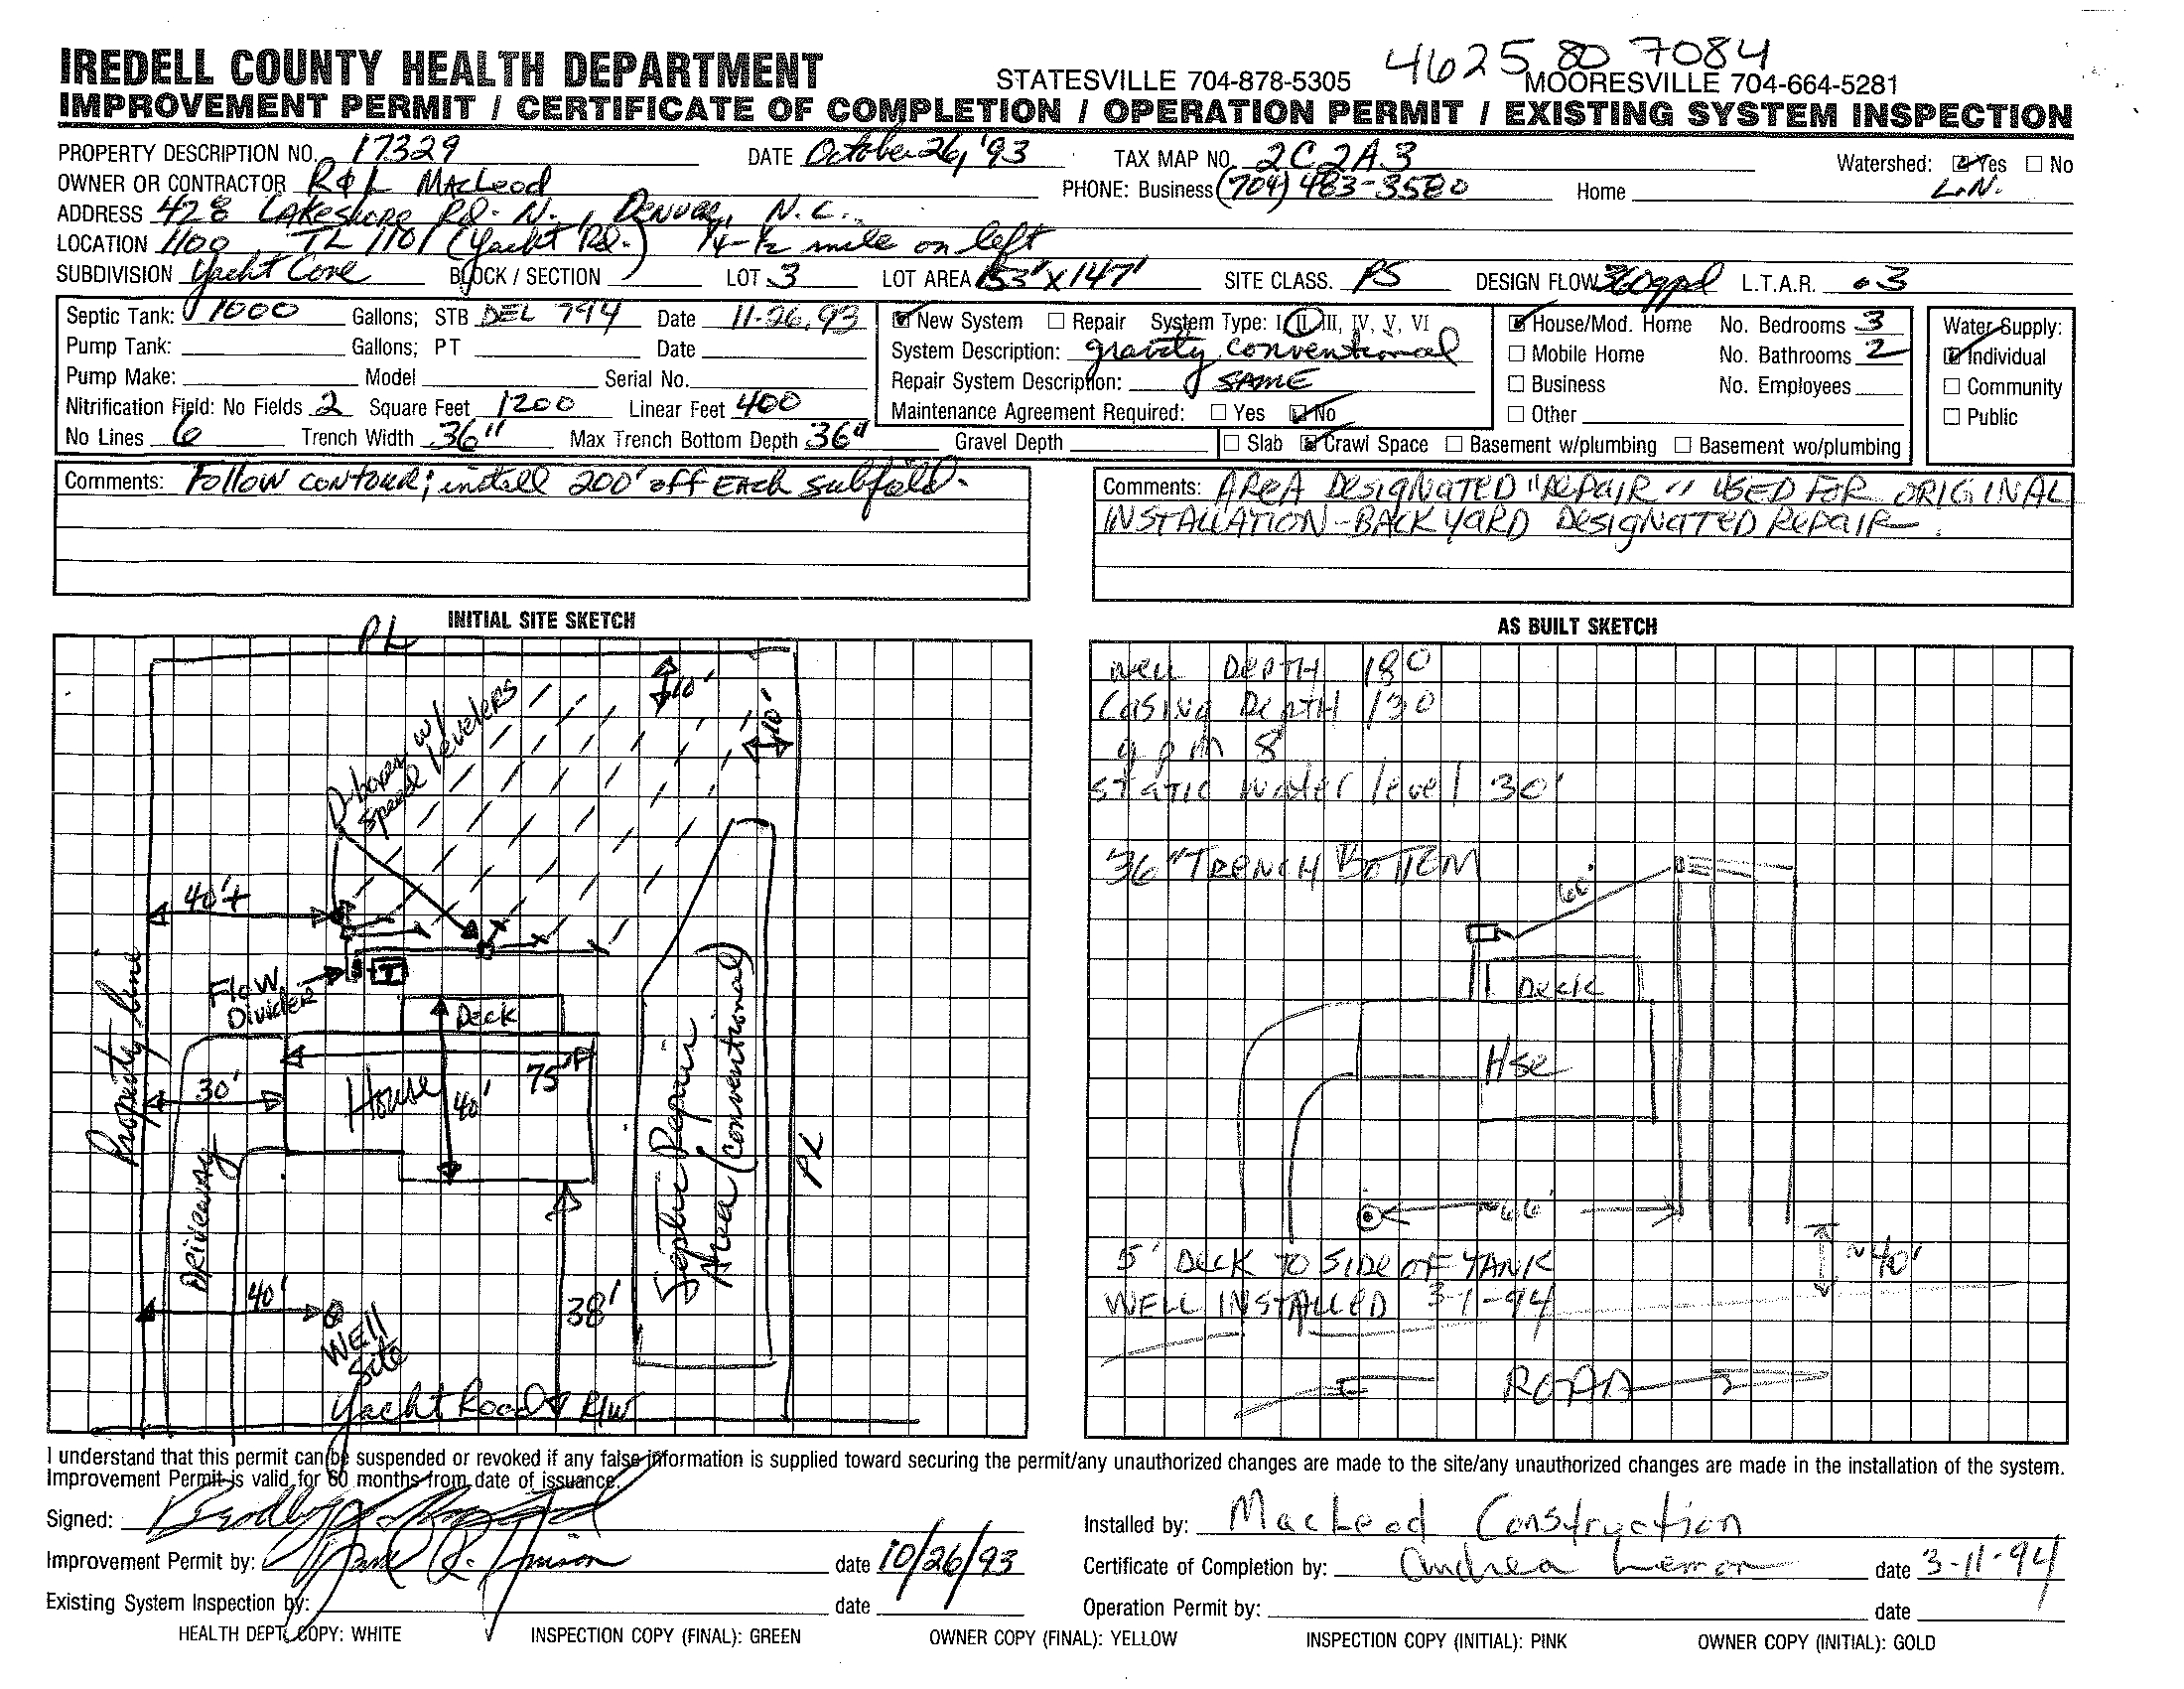 4625 80 7084
IREDELL COUNTY HEALTH DEPARTMENT STATESVILLE 704-878-5305 MOORESVILLE 704-664-5281
IMPROVEMENT PERMIT / CERTIFICATE OF COMPLETION / OPERATION PERMIT / EXISTING SYSTEM INSPECTION
PROPERTY DESCRIPTION NO. 17329 DATE October 26, '93 TAX MAP NO. 2C2A3 Watershed: Yes No
OWNER OR CONTRACTOR R&L MacLeod PHONE: Business (704) 483-3580 Home L.N.
ADDRESS 428 Lakeshore Rd. N., Denver, N.C.
LOCATION 1100 TL 1101 (Yacht Rd.) 1/4-1/2 mile on left
SUBDIVISION Yacht Cove BLOCK / SECTION LOT 3 LOT AREA 153' X 147' SITE CLASS. PS DESIGN FLOW 360gpd L.T.A.R. .3
Septic Tank: 1000 Gallons; STB DEL 794 Date 11-26,93
Pump Tank: Gallons; PT Date
Pump Make: Model Serial No.
Nitrification Field: No Fields 2 Square Feet 1200 Linear Feet 400
No Lines 6 Trench Width 36" Max Trench Bottom Depth 36" Gravel Depth
New System Repair System Type: I, II, III, IV, V, VI
System Description: gravity conventional
Repair System Description: SAME
Maintenance Agreement Required: Yes No
Slab Crawl Space Basement w/plumbing Basement wo/plumbing
House/Mod. Home No. Bedrooms 3
Mobile Home No. Bathrooms 2
Business No. Employees
Other
Water Supply:
Individual
Community
Public
Comments: Follow contour; install 200' off EACH subfield.
Comments: AREA DESIGNATED "REPAIR" USED FOR ORIGINAL
INSTALLATION-BACKYARD DESIGNATED REPAIR.
INITIAL SITE SKETCH
PL
10'
10'
D-boxes w/
speed levelers
40'+
Property line
Flow
Divider
T
Deck
30'
75'
House
40'
Driveway
Septic Repair
Area (conventional)
PL
40'
Well
Site
38'
Yacht Road R/W
AS BUILT SKETCH
WELL DEPTH 180
CASING DEPTH 130
gpm 8
static water level 30'
36" TRENCH BOTTOM
66'
Deck
Hse
~66'
5' DECK TO SIDE OF TANK
~40'
WELL INSTALLED 3-1-94
ROAD
I understand that this permit can be suspended or revoked if any false information is supplied toward securing the permit/any unauthorized changes are made to the site/any unauthorized changes are made in the installation of the system.
Improvement Permit is valid for 60 months from date of issuance.
Signed:
Improvement Permit by: date 10/26/93
Existing System Inspection by: date
Installed by: MacLeod Construction
Certificate of Completion by: Andrea Lemon date 3-11-94
Operation Permit by: date
HEALTH DEPT. COPY: WHITE INSPECTION COPY (FINAL): GREEN OWNER COPY (FINAL): YELLOW INSPECTION COPY (INITIAL): PINK OWNER COPY (INITIAL): GOLD